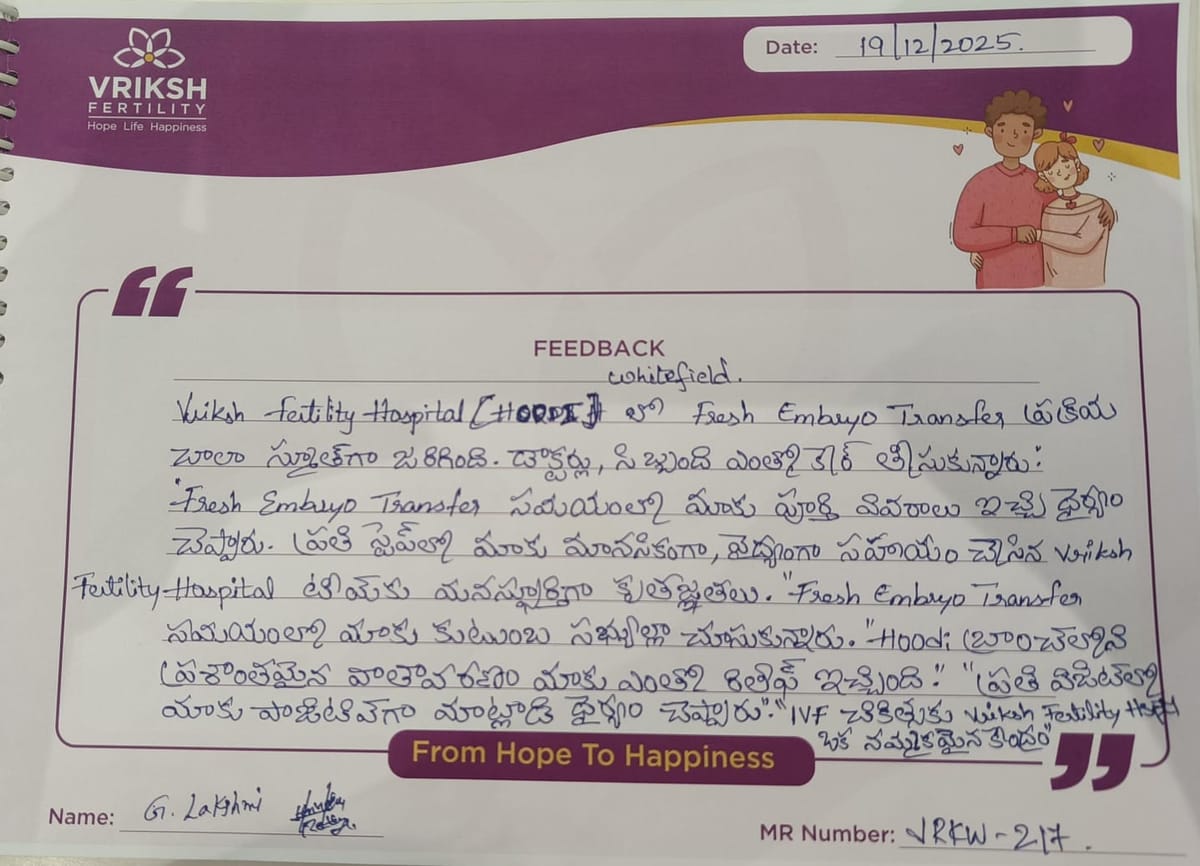 VRIKSH
FERTILITY
Hope Life Happiness
Date: 19/12/2025.
FEEDBACK
Whitefield.
Vriksh Fertility Hospital [HOODI] లో Fresh Embryo Transfer ప్రక్రియ
చాలా స్మూత్‌గా జరిగింది. డాక్టర్లు, సిబ్బంది ఎంతో కేర్ తీసుకున్నారు."
"Fresh Embryo Transfer సమయంలో మాకు పూర్తి వివరాలు ఇచ్చి ధైర్యం
చెప్పారు. ప్రతి స్టెప్‌లో మాకు మానసికంగా, వైద్యంగా సహాయం చేసిన Vriksh
Fertility Hospital టీమ్‌కు మనస్ఫూర్తిగా కృతజ్ఞతలు." "Fresh Embryo Transfer
సమయంలో మాకు కుటుంబ సభ్యుల్లా చూసుకున్నారు. "Hoodi బ్రాంచ్‌లోని
ప్రశాంతమైన వాతావరణం మాకు ఎంతో రిలీఫ్ ఇచ్చింది." "ప్రతి విజిట్‌లో
మాకు పాజిటివ్‌గా మాట్లాడి ధైర్యం చెప్పారు". "IVF చికిత్సకు Vriksh Fertility
ఒక నమ్మకమైన కేంద్రం"
From Hope To Happiness
Name: G. Lakshmi
MR Number: VRKW-217.